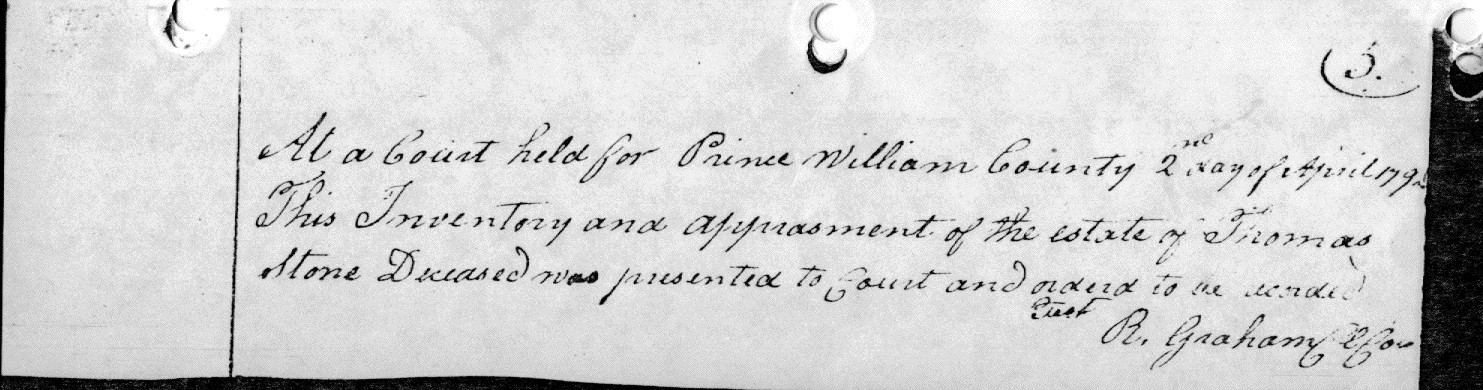 5.
At a Court held for Prince William County 2nd day of April 179
This Inventory and apprasment of the estate of Thomas
Stone Deceased was presented to Court and orderd to be recorded
Test
R. Graham Cl Cou